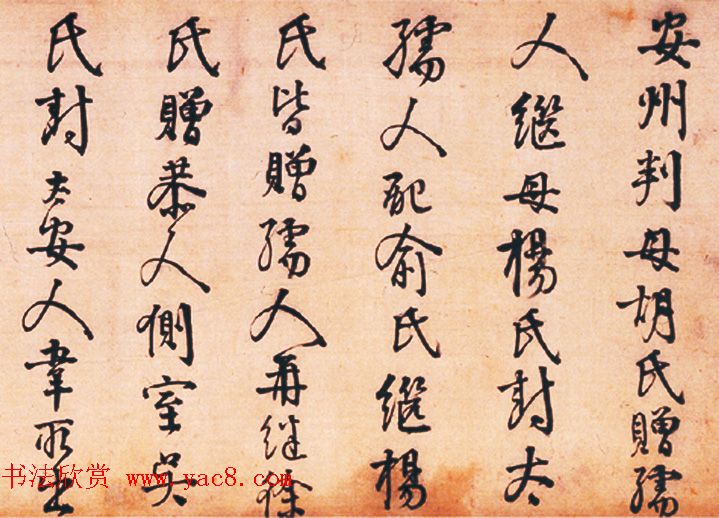 安州判母胡氏贈孺
人繼母楊氏封太
孺人配俞氏繼楊
氏皆贈孺人再继徐
氏贈恭人側室吳
氏封太安人韋所出
书法欣赏 www.yac8.com